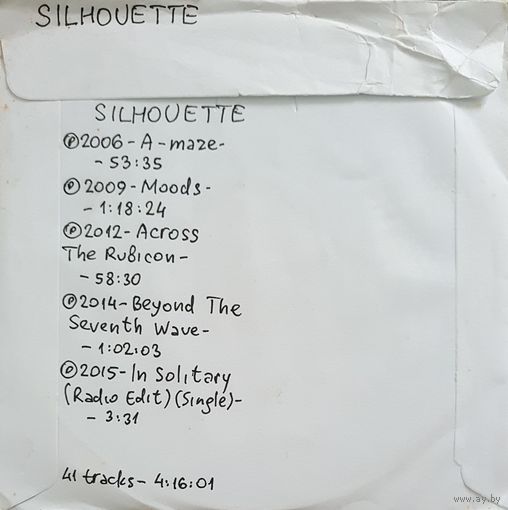 SILHOUETTE
SILHOUETTE
Ⓟ2006-A-maze-
-53:35
Ⓟ2009-Moods-
-1:18:24
Ⓟ2012-Across
The Rubicon-
-58:30
Ⓟ2014-Beyond The
Seventh Wave-
-1:02:03
Ⓟ2015-In Solitary
(Radio Edit)(Single)-
-3:31
41 tracks-4:16:01
www.ay.by